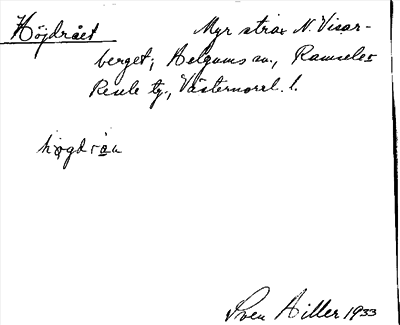 Höjdrået Myr strax N. Visar-
berget; Helgums sn., Ramsele o
Resele tg., Västernorrl. l.
högdråa
Sven Hiller 1933